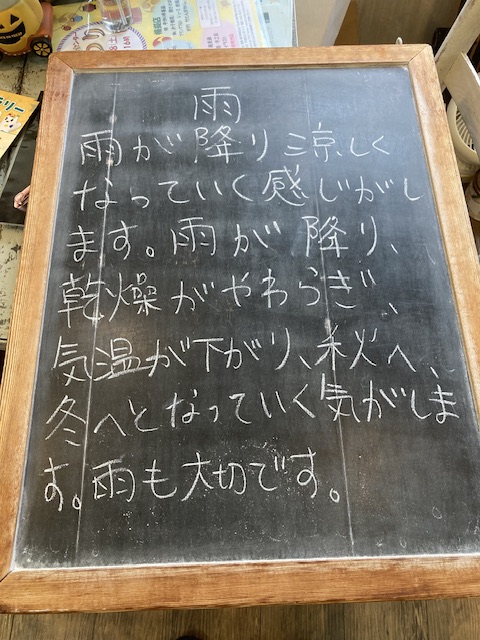 雨
雨が降り涼しく
なっていく感じがし
ます。雨が降り、
乾燥がやわらぎ、
気温が下がり、秋へ、
冬へとなっていく気がしま
す。雨も大切です。